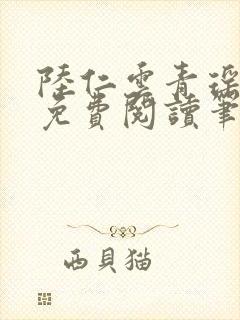 陸仁雲青瑤
免費閱讀筆
西貝猫